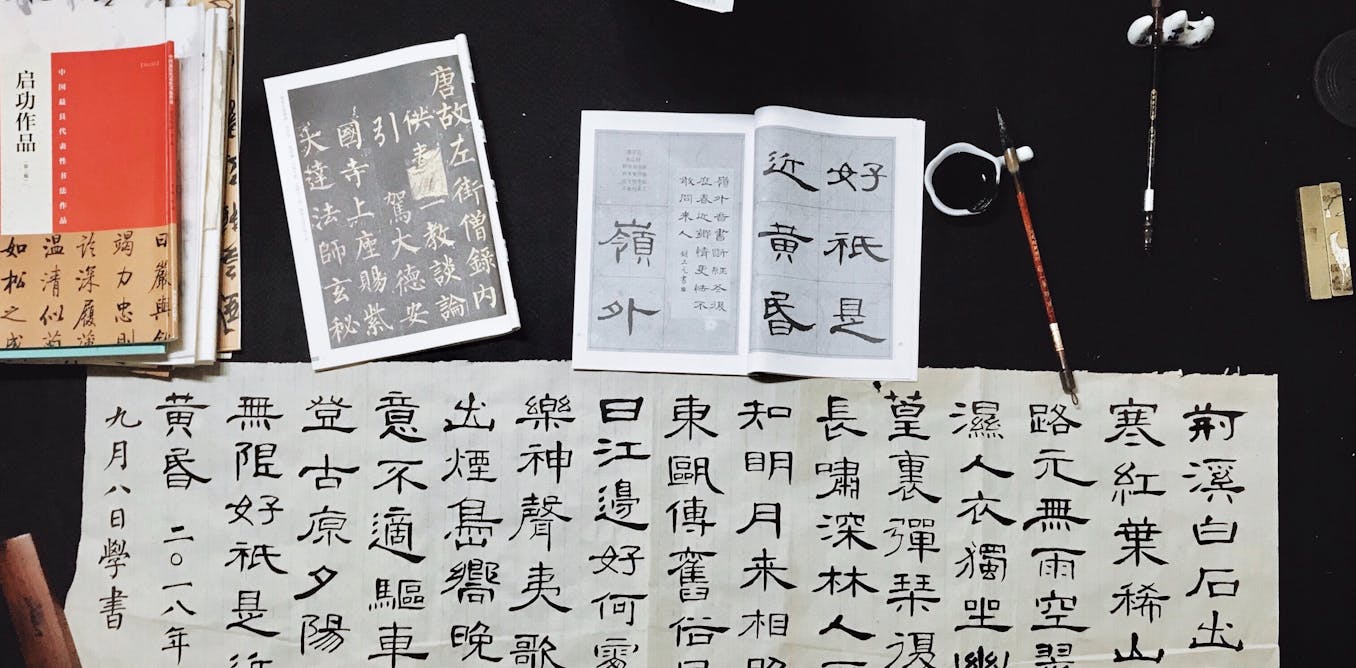 启功作品
中国最具代表性书法作品
日嚴與
竭力忠則
深履薄
温清似
如松之
唐故左街僧錄内
供一教談論
引駕大德安
國寺上座賜紫
達法師玄秘
好祇是
近黃昏
嶺外音書断經冬復
春近鄉情更怯不
敢問来人
嶺外
荊溪白石出
寒紅葉稀山
路元無雨空翠
濕人衣獨坐幽
篁裏彈琴復
長嘯深林人
知明月来相照
東甌傳舊俗
日江邊好何處
樂神聲夷歌
出煙島嚮晚
意不適驅車
登古原夕陽
無限好祇是近
黃昏 二〇一八年
九月八日學書